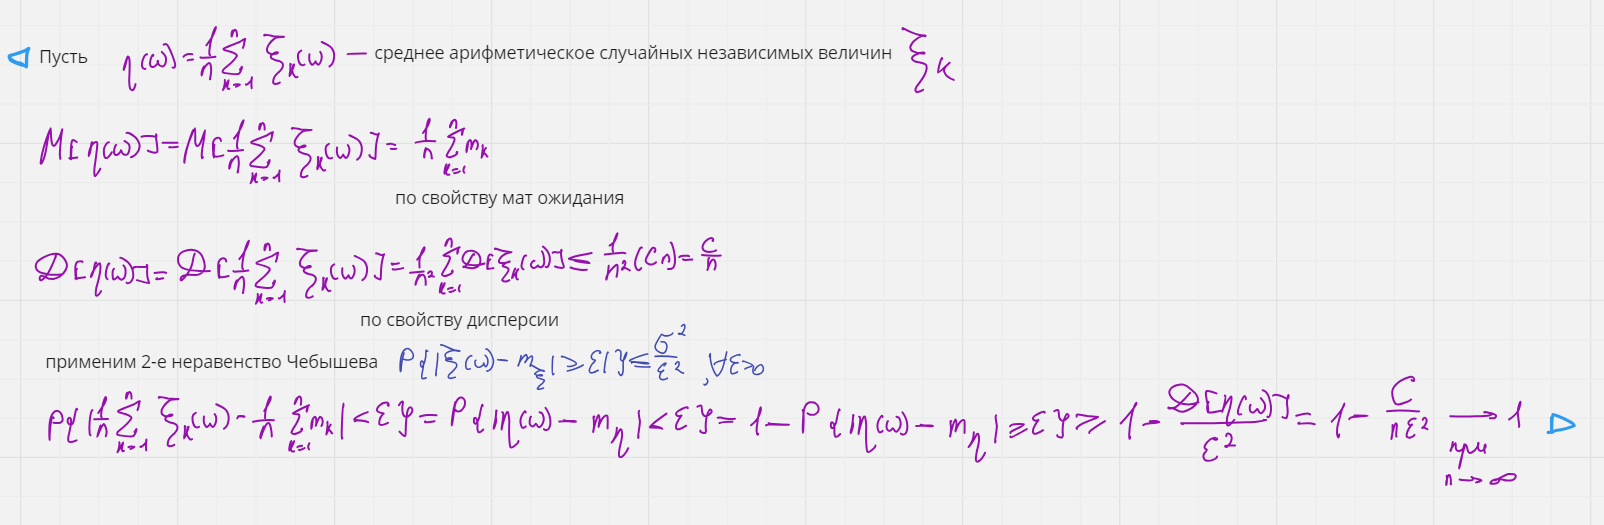 Пусть η(ω) = 1/n ∑_{k=1}^{n} ξ_k(ω) — среднее арифметическое случайных независимых величин ξ_k
M[η(ω)] = M[1/n ∑_{k=1}^{n} ξ_k(ω)] = 1/n ∑_{k=1}^{n} m_k
по свойству мат ожидания
D[η(ω)] = D[1/n ∑_{k=1}^{n} ξ_k(ω)] = 1/n² ∑_{k=1}^{n} D[ξ_k(ω)] ≤ 1/n² (Cn) = C/n
по свойству дисперсии
применим 2-е неравенство Чебышева P{|ξ(ω) - m_ξ| ≥ ε|} ≤ σ²/ε², ∀ε>0
P{|1/n ∑_{k=1}^{n} ξ_k(ω) - 1/n ∑_{k=1}^{n} m_k| < ε} = P{|η(ω) - m_η| < ε} = 1 - P{|η(ω) - m_η| ≥ ε} ≥ 1 - D[η(ω)]/ε² = 1 - C/nε² → 1
при
n → ∞